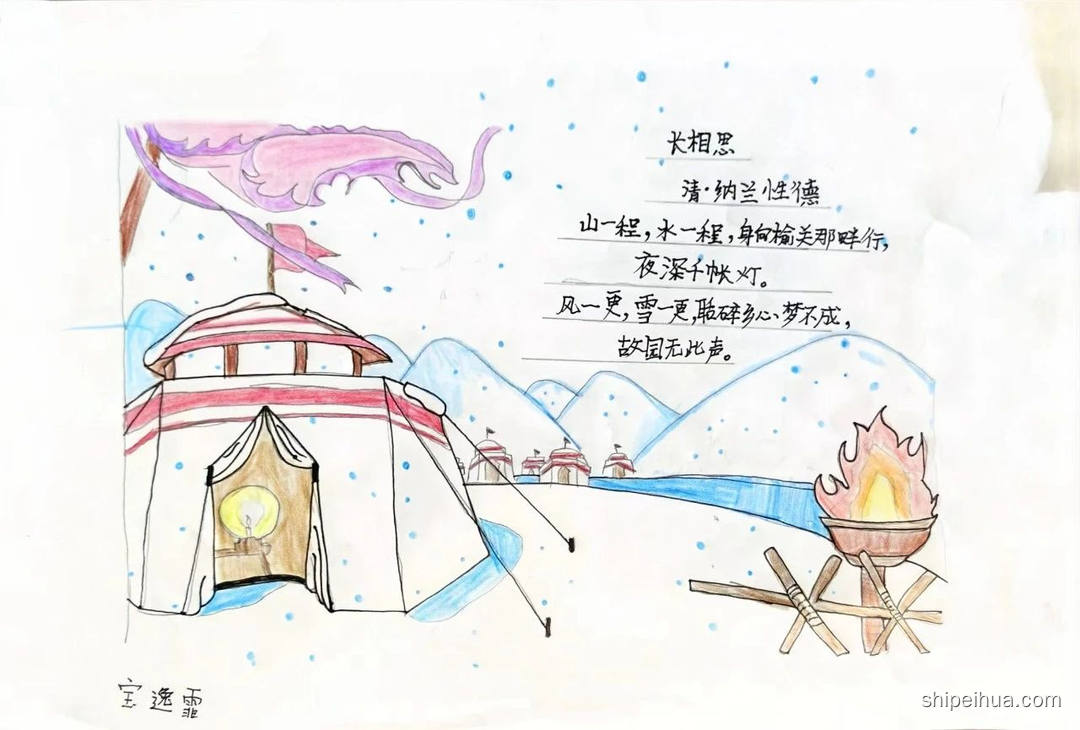 长相思
清·纳兰性德
山一程，水一程，身向榆关那畔行，
夜深千帐灯。
风一更，雪一更，聒碎乡心梦不成，
故国无此声。
宝逸霏
shipeihua.com